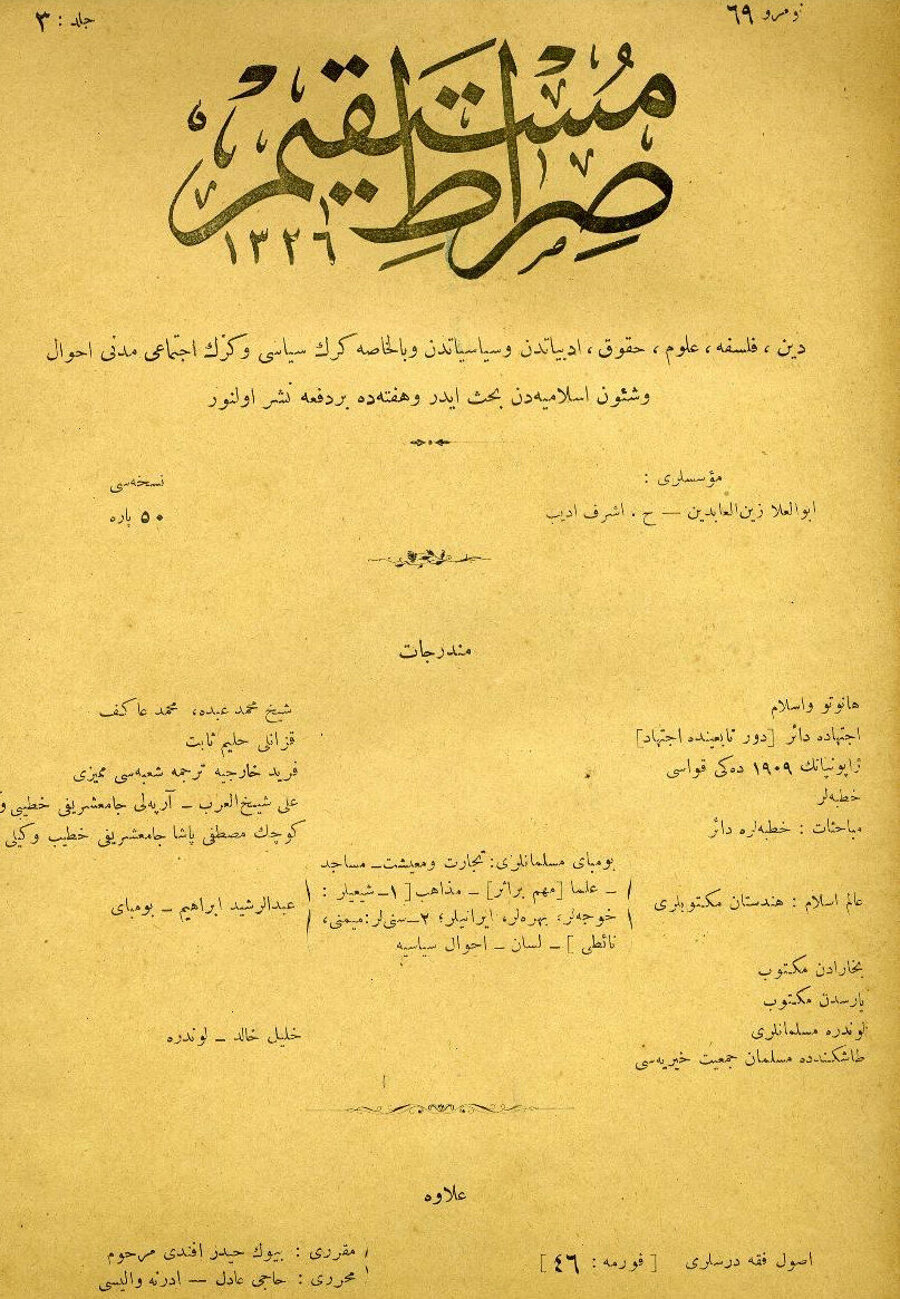 نومرو ٦٩
جلد : ٣
صراط مستقيم
١٣٢٦
دين ، فلسفه ، علوم ، حقوق ، ادبياتدن وسياسياتدن وبالخاصه كرك سياسى وكرك اجتماعى مدنى احوال
وشئون اسلاميه‌دن بحث ايدر وهفته‌ده بردفعه نشر اولنور
مؤسسلرى :
نسخه‌سى
ابوالعلا زين‌العابدين — ح . اشرف اديب
٥٠ پاره
مندرجات
هانوتو واسلام
شيخ محمد عبده، محمد عاكف
اجتهاده دائر [دور تابعينده اجتهاد]
قزانلى حليم ثابت
ژاپونيانك ١٩٠٩ ده‌كى قواسى
فريد خارجيه ترجمه شعبه‌سى مميزى
خطبه‌لر
على شيخ‌العرب ـ آرپه‌لى جامعشريفى خطيبى
مباحثات : خطبه‌لره دائر
كوچك مصطفى پاشا جامعشريفى خطيب وكيلى
بومباى مسلمانلرى: تجارت ومعيشت ـ مساجد
ـ علما [مهم براثر] ـ مذاهب [١ـ شيعيلر :
عالم اسلام : هندستان مكتوبلرى
عبدالرشيد ابراهيم ـ بومباى
خوجه‌لر، بهره‌لر، ايرانيلر؛ ٢ـ سنى‌لر: ميمنى،
نائطى] ـ لسان ـ احوال سياسيه
بخارادن مكتوب
پارسدن مكتوب
لوندره مسلمانلرى
خليل خالد ـ لوندره
طاشكندده مسلمان جمعيت خيريه‌سى
علاوه
مقررى : بيوك حيدر افندى مرحوم
اصول فقه درسلرى [ فورمه : ٤٦ ]
محررى : حاجى عادل — ادرنه واليسى